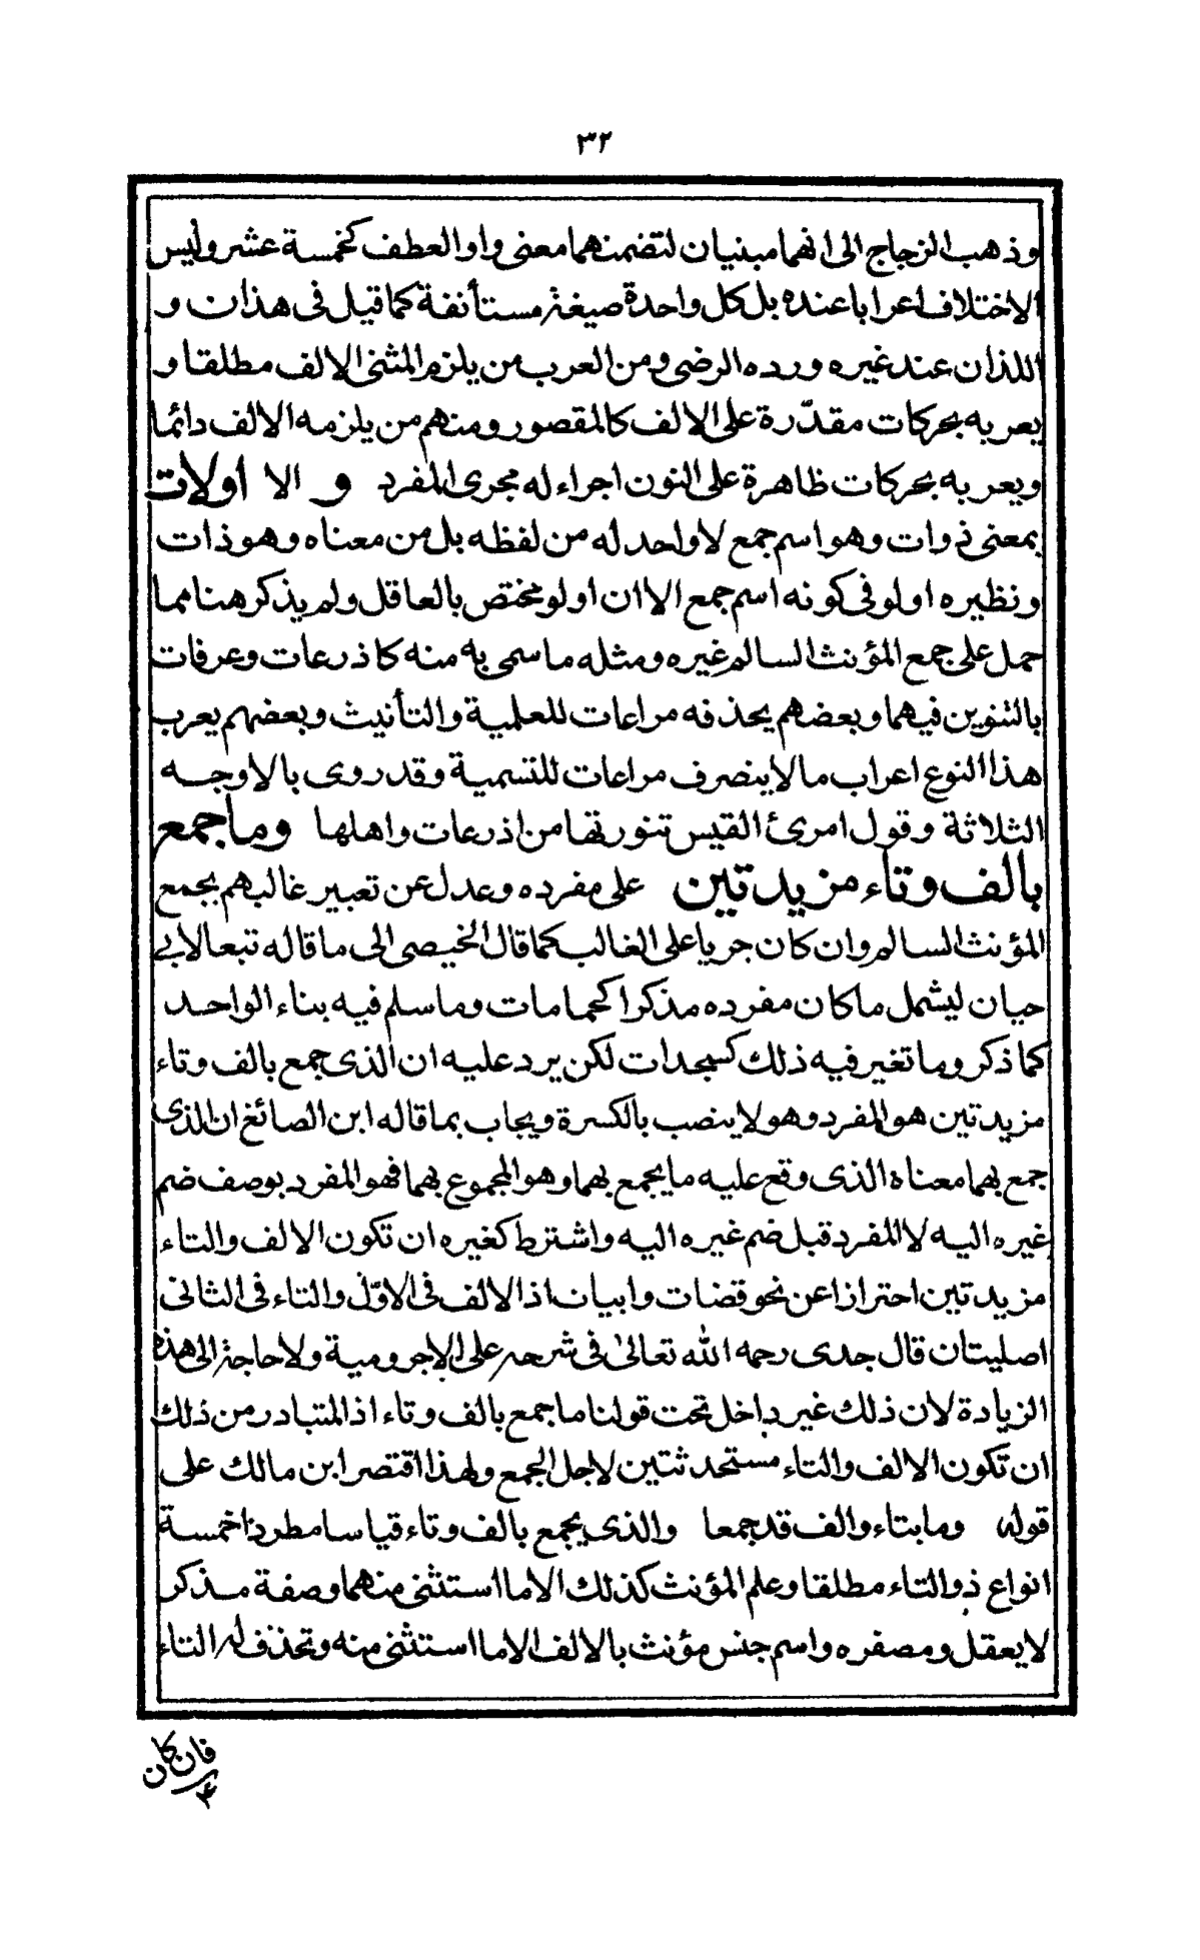 ٣٢
وذهب الزجاج الى انهما مبنيان لتضمنهما معنى واو العطف كخمسة عشر وليس
الاختلاف اعرابا عنده بل كل واحدة صيغة مستأنفة كما قيل فى هذان و
اللذان عند غيره ورده الرضى ومن العرب من يلزم المثنى الالف مطلقا و
يعربه بحركات مقدّرة على الالف كالمقصور ومنهم من يلزمه الالف دائما
ويعربه بحركات ظاهرة على النون اجراء له مجرى المفرد و الا اولات
بمعنى ذوات وهو اسم جمع لا واحد له من لفظه بل من معناه وهو ذات
ونظيره اولو فى كونه اسم جمع الا ان اولو مختص بالعاقل ولم يذكر هنا مما
حمل على جمع المؤنث السالم غيره ومثله ما سمى به منه كاذرعات وعرفات
بالتنوين فيهما وبعضهم يحذفه مراعات للعلمية والتأنيث وبعضهم يعرب
هذا النوع اعراب ما لا ينصرف مراعات للتسمية وقد روى بالاوجه
الثلاثة وقول امرئ القيس تنورتها من اذرعات واهلها وما جمع
بالف وتاء مزيدتين على مفرده وعدل عن تعبير غالبهم بجمع
المؤنث السالم وان كان جريا على الغالب كما قال الخبيصى الى ما قاله تبعا لابى
حيان ليشمل ما كان مفرده مذكرا كحمامات وما سلم فيه بناء الواحد
كما ذكر وما تغير فيه ذلك كسجدات لكن يرد عليه ان الذى جمع بالف وتاء
مزيدتين هو المفرد وهو لا ينصب بالكسرة ويجاب بما قاله ابن الصائغ ان الذى
جمع بهما معناه الذى وقع عليه ما يجمع بهما وهو المجموع بهما فهو المفرد بوصف ضم
غيره اليه لا المفرد قبل ضم غيره اليه واشترط كغيره ان تكون الالف والتاء
مزيدتين احترازا عن نحو قضات وابيات اذ الالف فى الاوّل والتاء فى الثانى
اصليتان قال جدى رحمه الله تعالىٰ فى شرحه على الاجرومية ولا حاجة الى هذه
الزيادة لان ذلك غير داخل تحت قولنا ما جمع بالف وتاء اذ المتبادر من ذلك
ان تكون الالف والتاء مستحدثتين لاجل الجمع ولهذا اقتصر ابن مالك على
قوله وما بتاء والف قد جمعا والذى يجمع بالف وتاء قياسا مطردا خمسة
انواع ذو التاء مطلقا وعلم المؤنث كذلك الا ما استثنى منهما وصفة مذكر
لا يعقل ومصغره واسم جنس مؤنث بالالف الا ما استثنى منه وتحذف له التاء
فان كان
٤